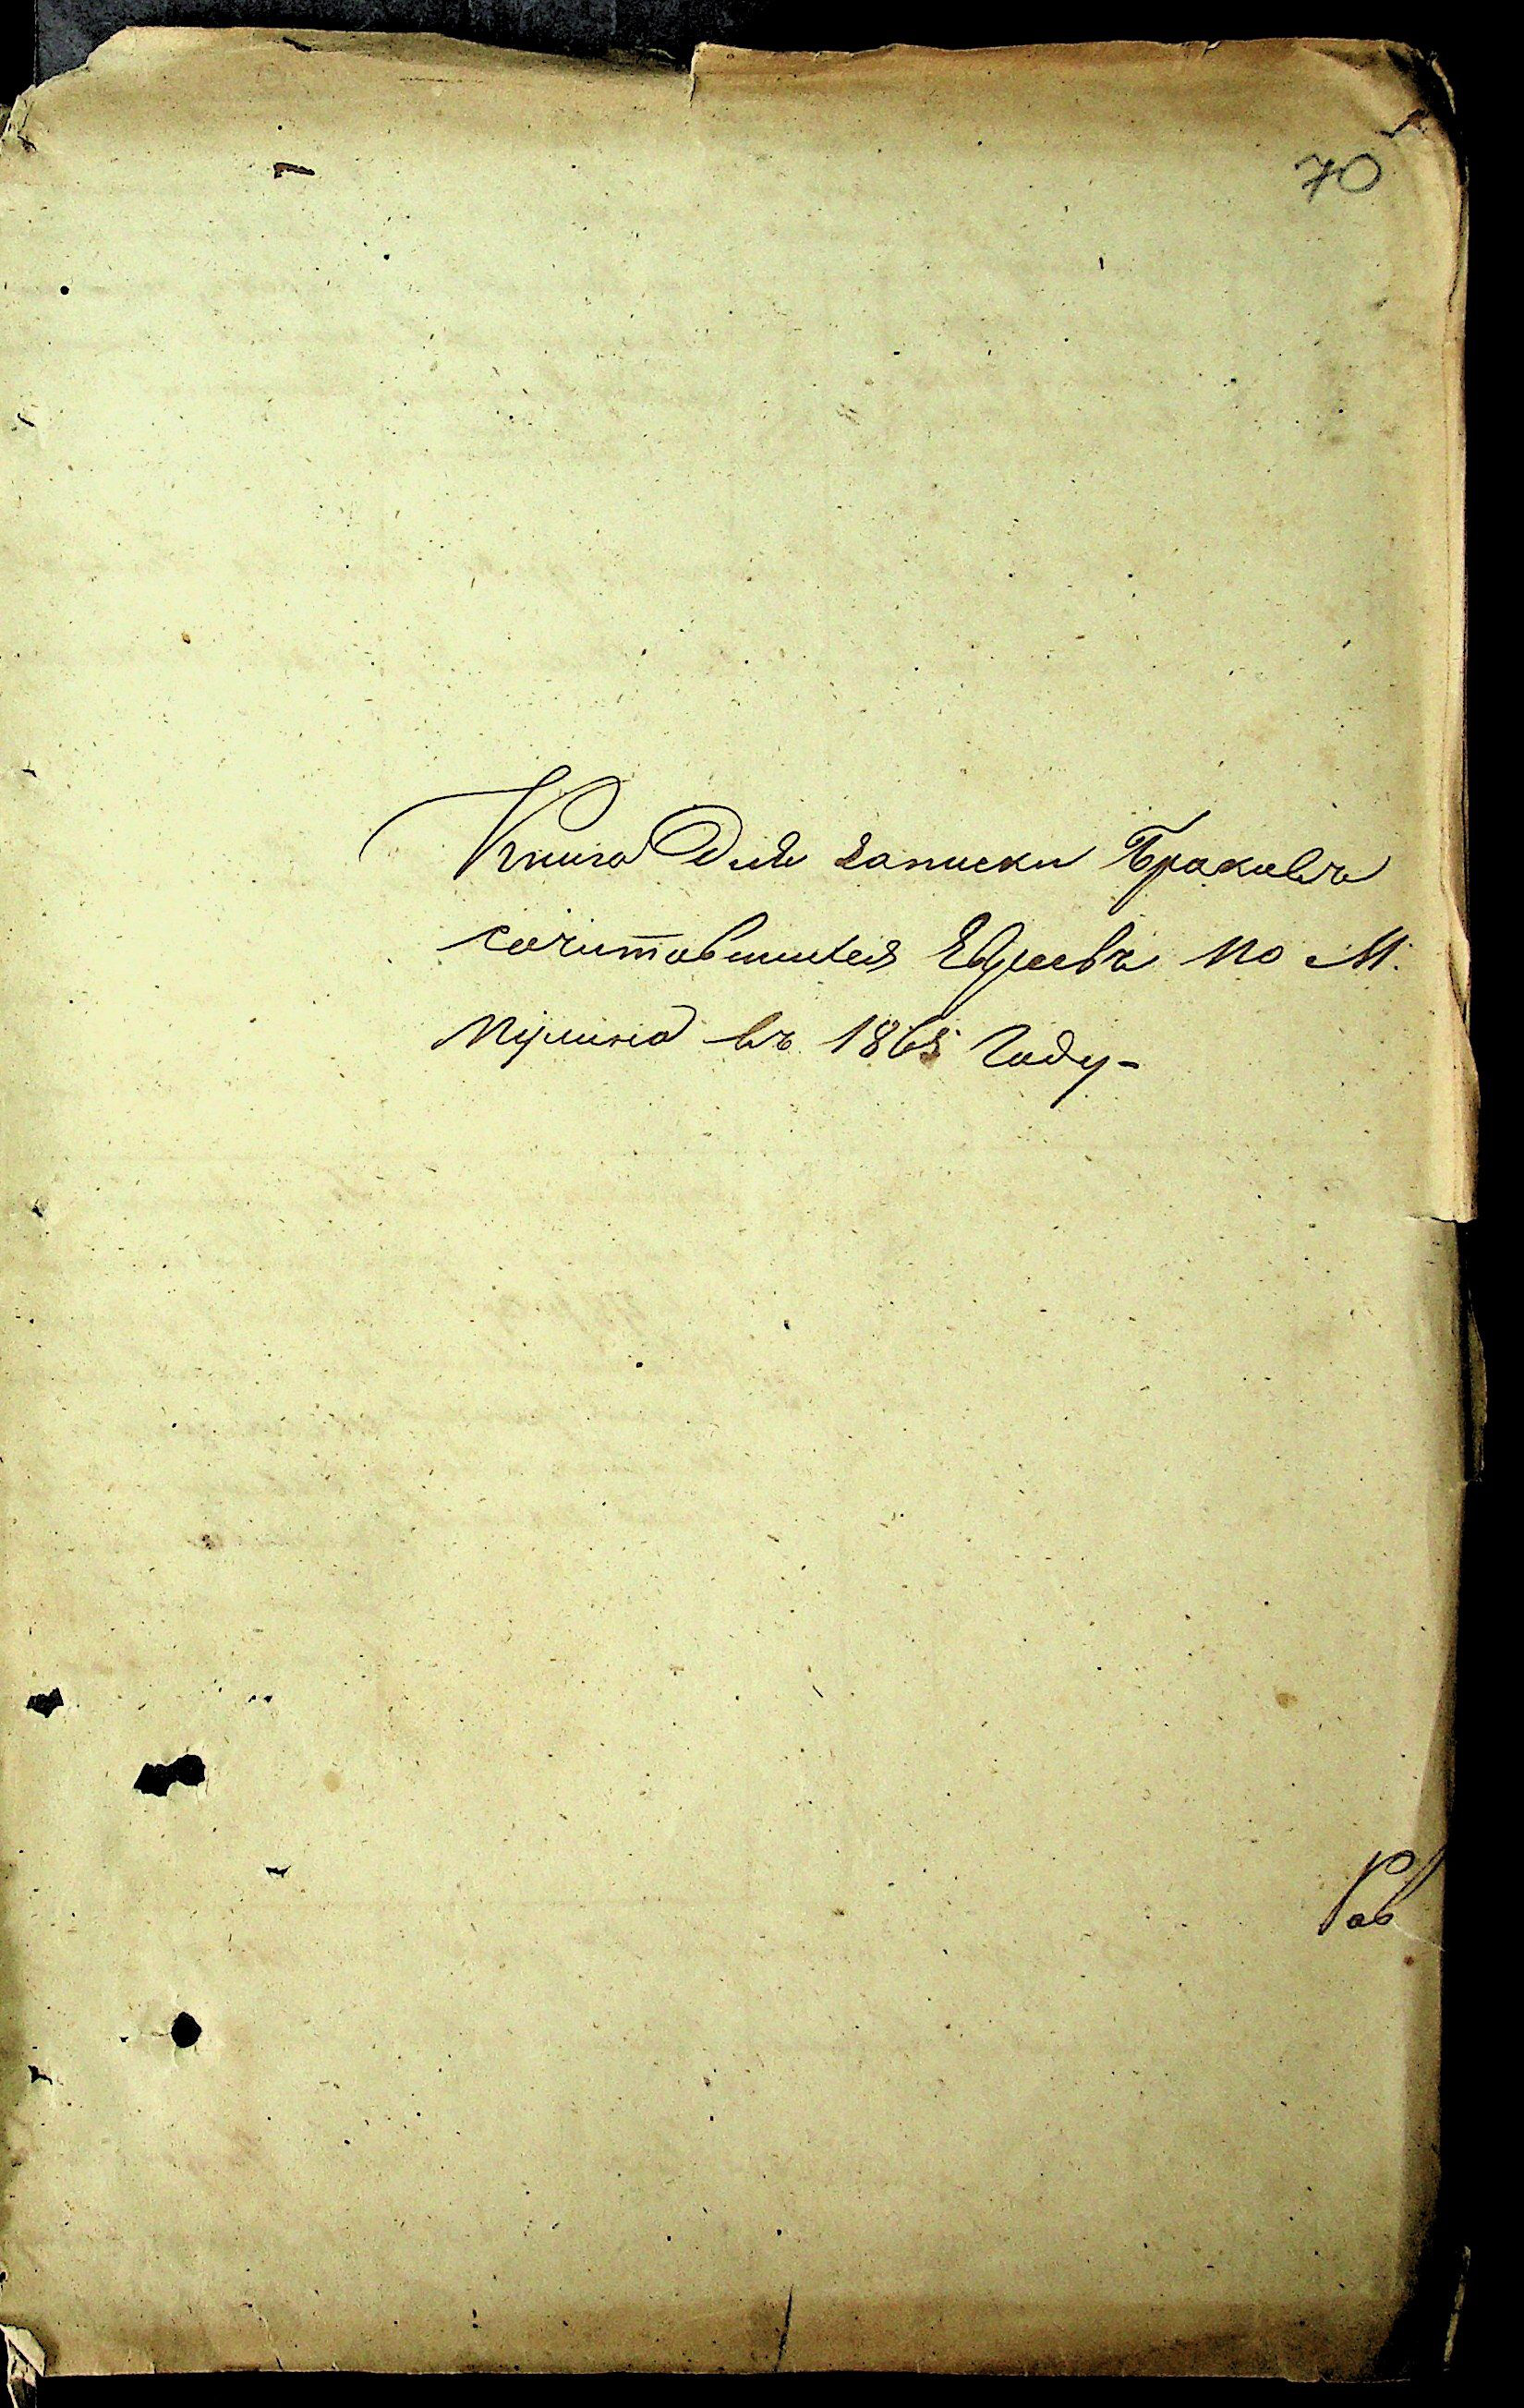 70
Книга Для записки Браковъ
сочитавшихся Евреевъ по М.
въ 1865 Году-
Рав